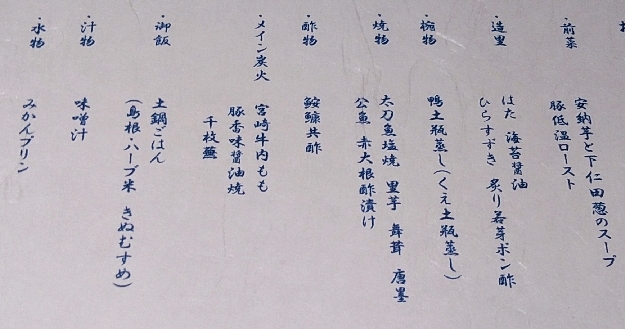 ・前菜
安納芋と下仁田葱のスープ
豚低温ロースト
・造里
はた 海苔醤油
ひらすずき 炙り若芽ポン酢
・椀物
鴨土瓶蒸し(くえ土瓶蒸し)
・焼物
太刀魚塩焼 里芋 舞茸 唐墨
公魚 赤大根酢漬け
・酢物
鮟鱇共酢
・メイン炭火
宮崎牛内もも
豚香味醤油焼
千枚蕪
・御飯
土鍋ごはん
(島根・ハーブ米 きぬむすめ)
・汁物
味噌汁
・水物
みかんプリン